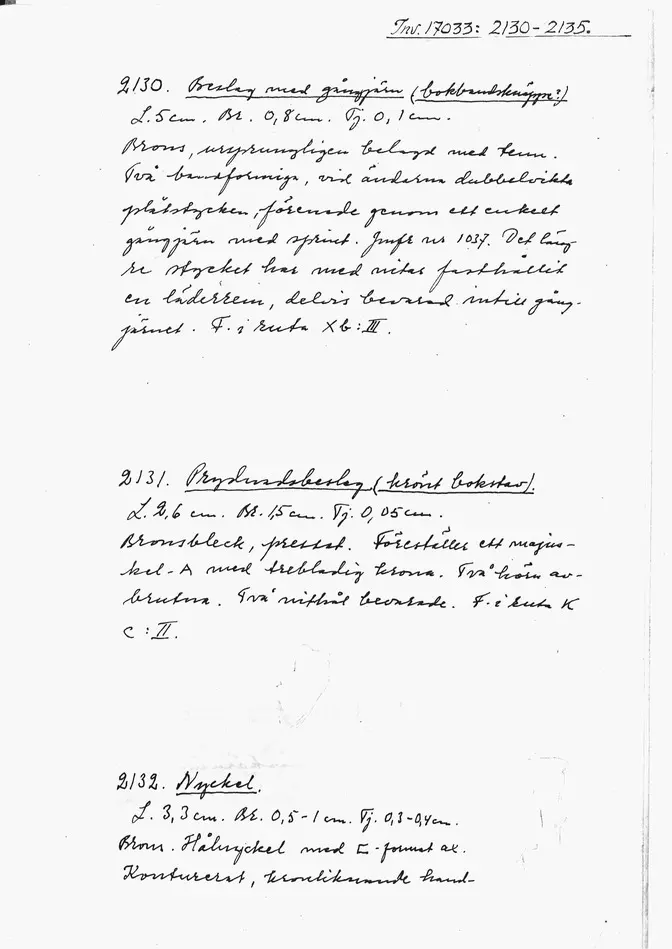 Inv. 17033: 2130-2135.
2130. Beslag med gångjärn (bokbandsknäppe?)
L. 5 cm. Br. 0,8 cm. Tj. 0,1 cm.
Brons, ursprungligen belagd med tenn.
Två bandformiga, vid ändarna dubbelvikta
plåtstycken, förenade genom ett enkelt
gångjärn med sprint. Jmfr nr 1037. Det läng-
re stycket har med nitar fasthållit
en läderrem, delvis bevarad intill gång-
järnet. F. i ruta Xb: III.
2131. Prydnadsbeslag (krönt bokstav).
L. 2,6 cm. Br. 1,5 cm. Tj. 0,05 cm.
Bronsbleck, pressat. Föreställer ett majus-
kel-A med trebladig krona. Två hörn av-
brutna. Två nithål bevarade. F. i ruta K
c: II.
2132. Nyckel.
L. 3,3 cm. Br. 0,5-1 cm. Tj. 0,3-0,4 cm.
Brons. Hålnyckel med E-format ax.
Konturerat, kronliknande hand-